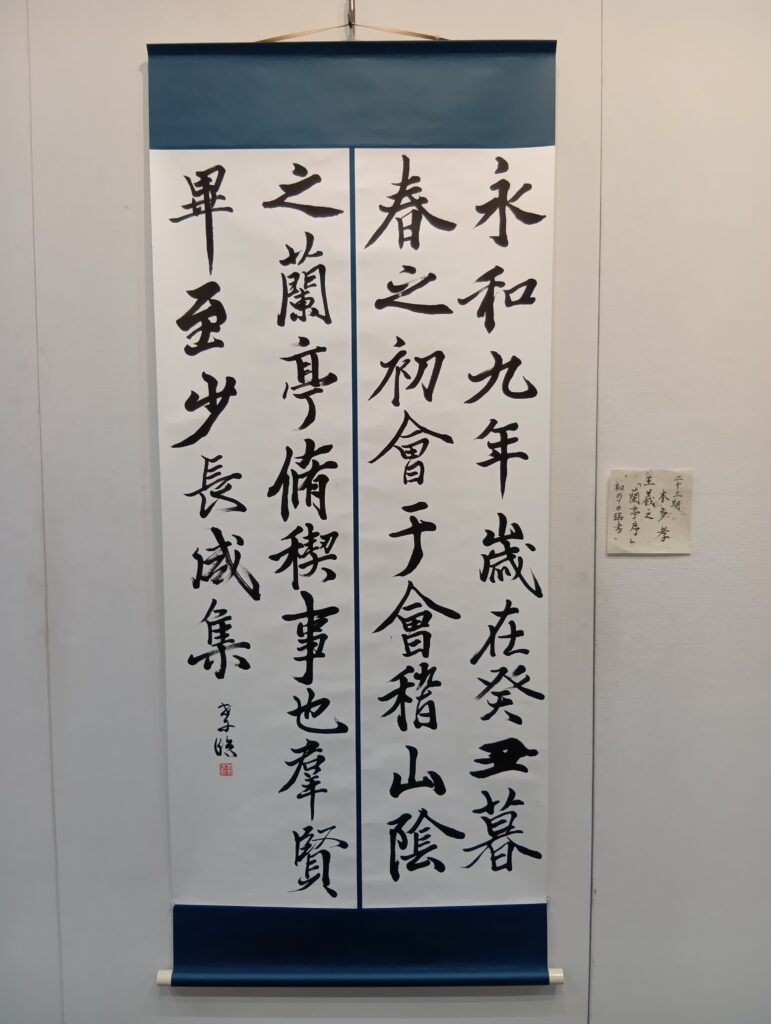 永和九年歳在癸丑暮
春之初會于會稽山陰
之蘭亭脩稧事也羣賢
畢至少長咸集
孝臨
二十三期
本多孝
王羲之
「蘭亭序」
初めての臨書